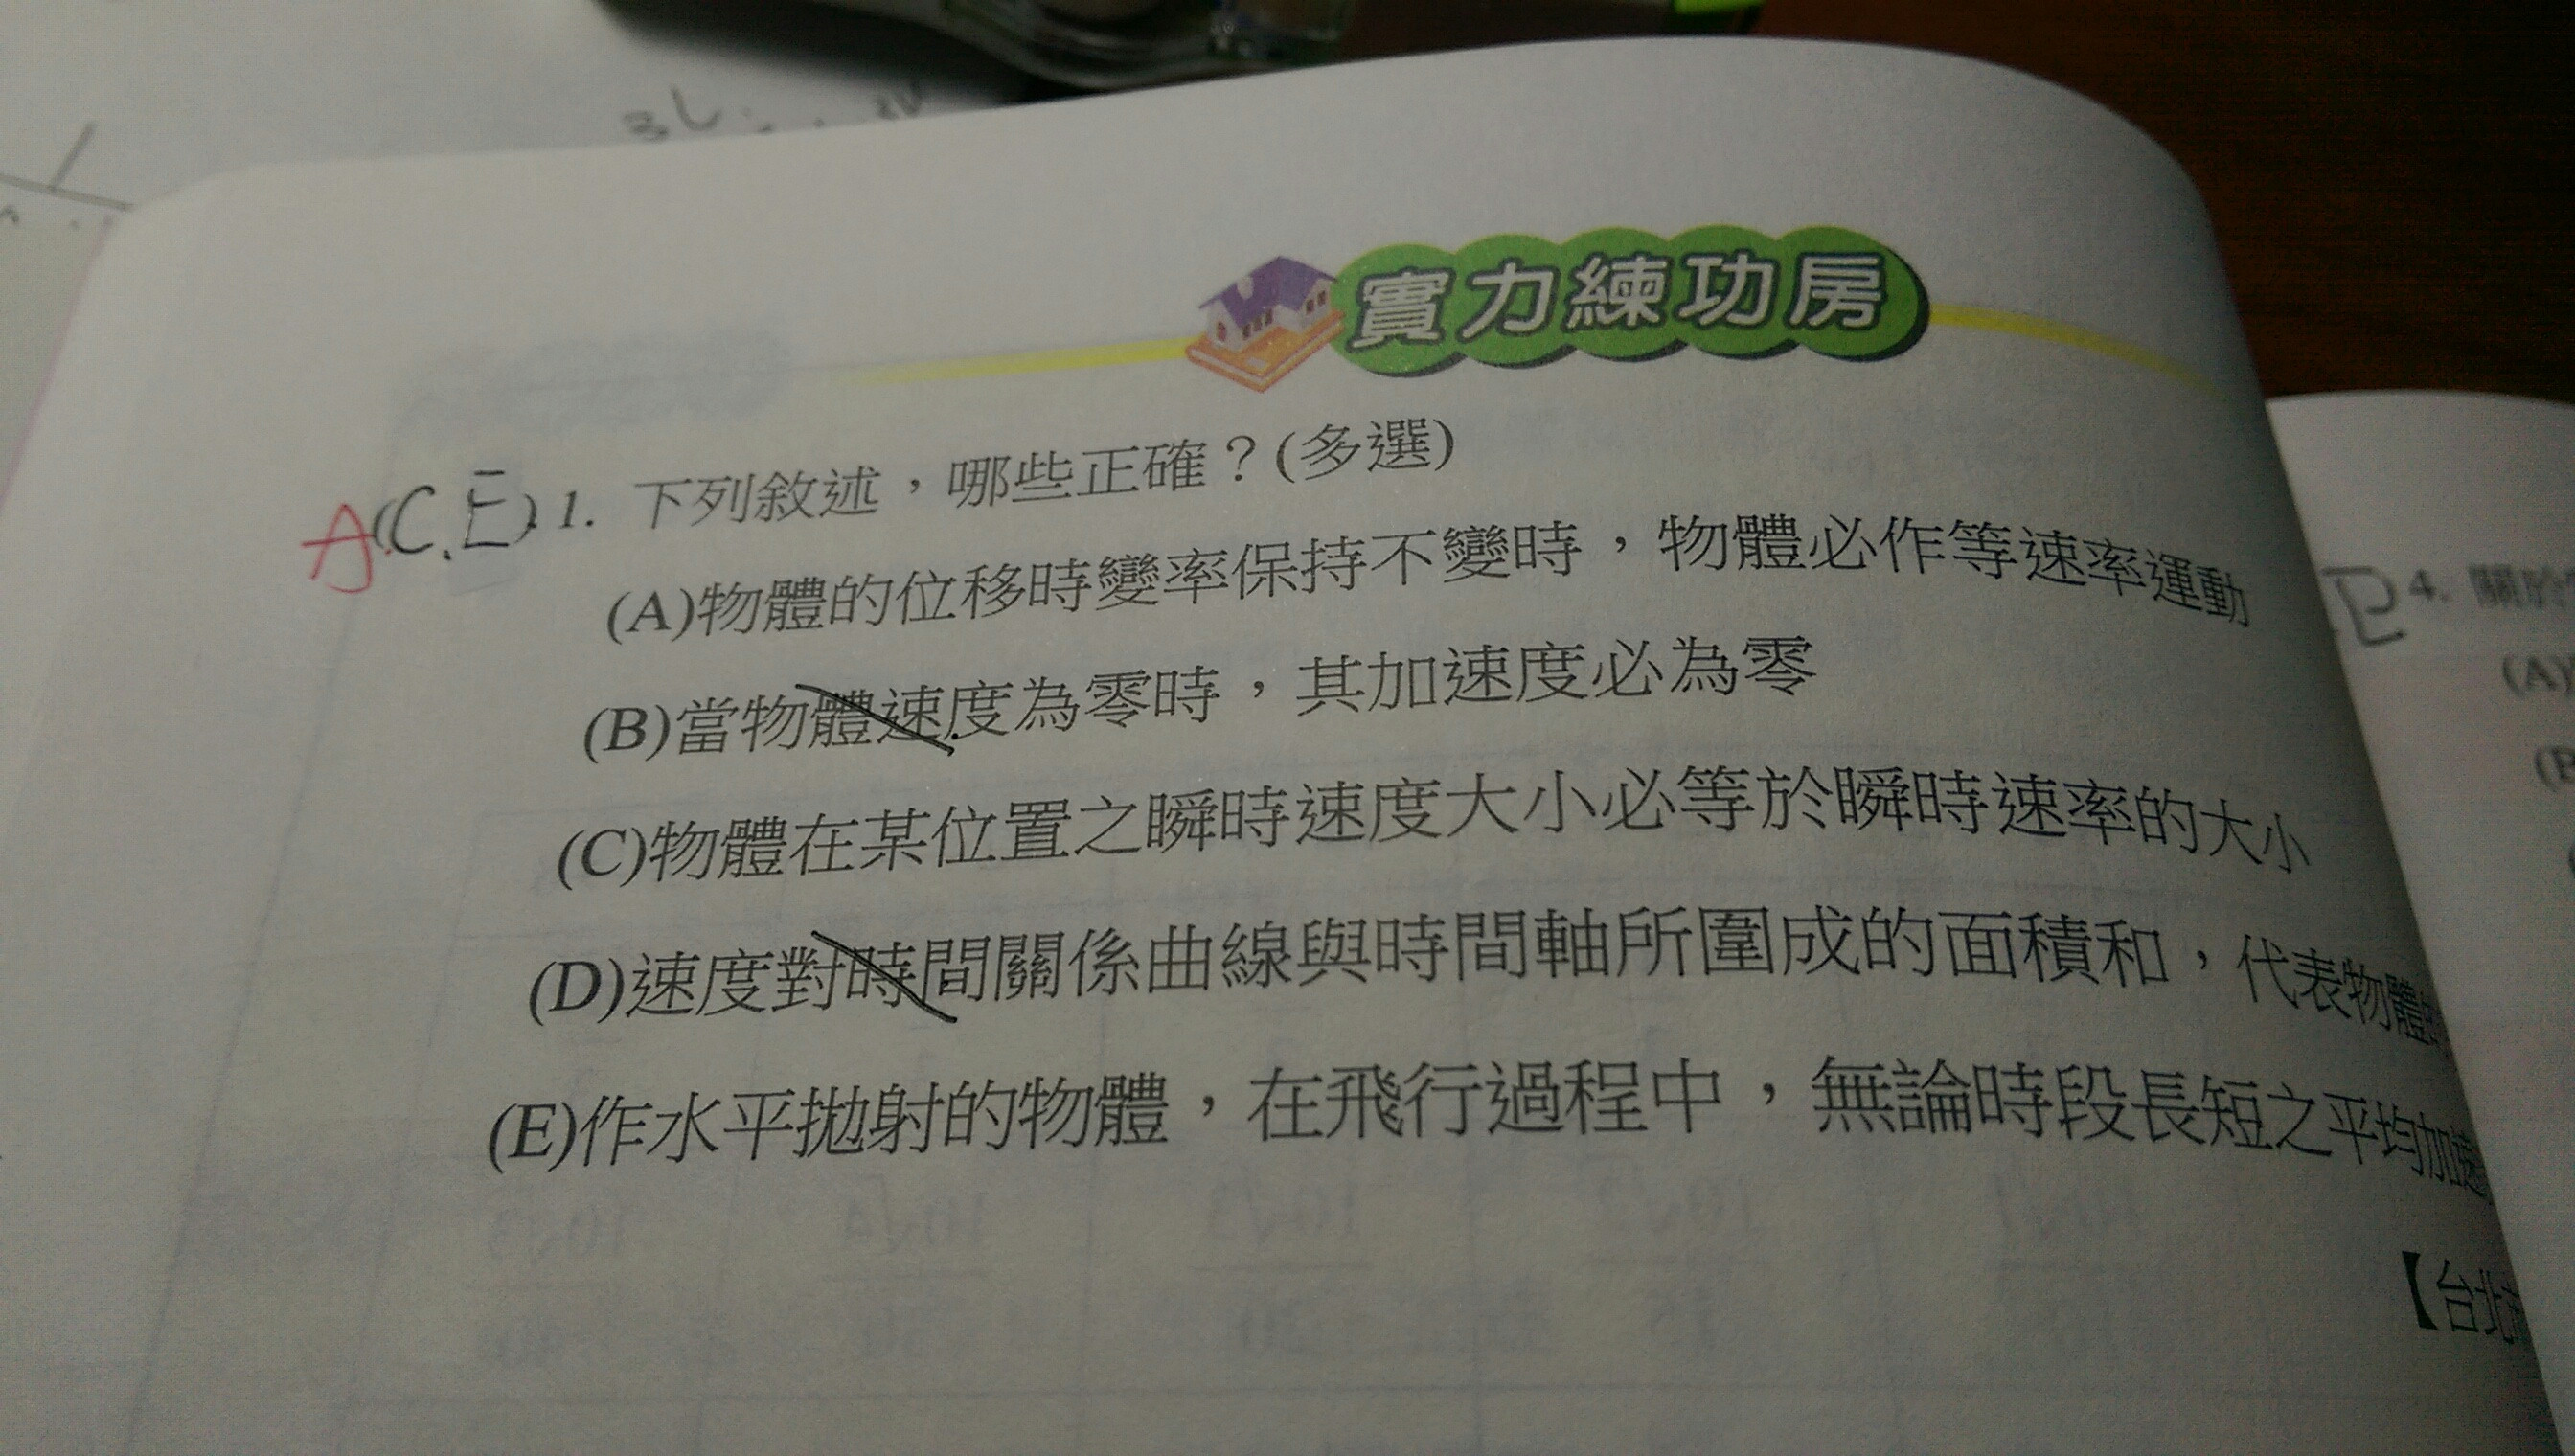 3L
實力練功房
A(C.E)1. 下列敘述，哪些正確？(多選)
(A)物體的位移時變率保持不變時，物體必作等速率運動
(B)當物體速度為零時，其加速度必為零
(C)物體在某位置之瞬時速度大小必等於瞬時速率的大小
(D)速度對時間關係曲線與時間軸所圍成的面積和，代表物體
(E)作水平拋射的物體，在飛行過程中，無論時段長短之平均加速
【台北
4. 關於
(A)
(B